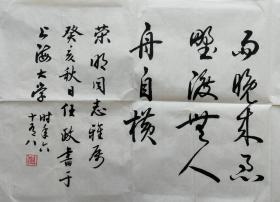 雨晚来急
野渡無人
舟自横
荣明同志雅属
癸亥秋日任政書于
上海大学
时年六
十有八